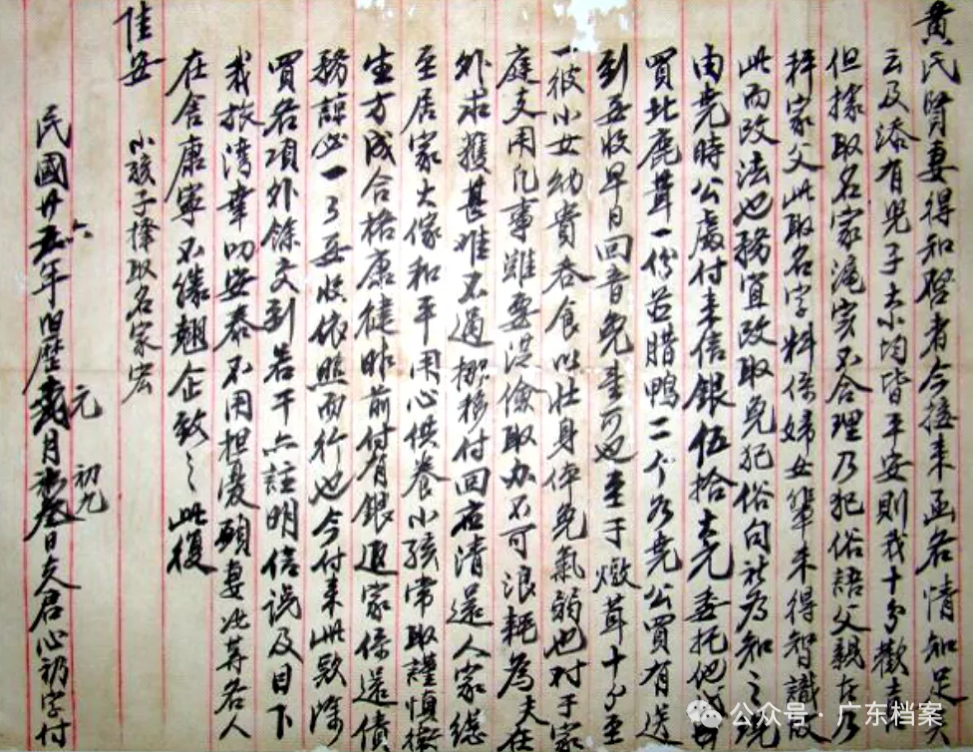 黄氏賢妻得和啓者今接来函各情知足矣
云及添有兒子大小均皆平安則我十分歡喜
但據取名家滝実不合理乃犯俗語父親在乃
拝家父此取名字料係婦女輩未得智識故
此而改法也務宜改取免犯俗句社為知之現
由堯時公處付来信銀伍拾大元委托他
買北鹿茸一份另腊鴨二个乃堯公買有送
到妥收早日回音免望可也至于燉茸十分至
彼小女幼貴吞食壮身体免氣弱也对于家
庭支用凡事雖要洪儉取办不可浪耗為夫在
外求獲甚难不過挪移付回應清還人家総
至居家大傢和平用心供養小孩常取謹慎衛
生方成合格康健昨前付有銀返家係還債
務諒必一了妥收依照而行也今付来此款除
買各項外餘交到若干亦註明信説及目下
我旅湾幸叨安泰不用担憂願妻此等各人
在舍康寧不像翹企致之此復
佳安
小孩子擇取名家宏
民國廿六年旧歷元月初九日夫君心礽字付
公众号·广东档案